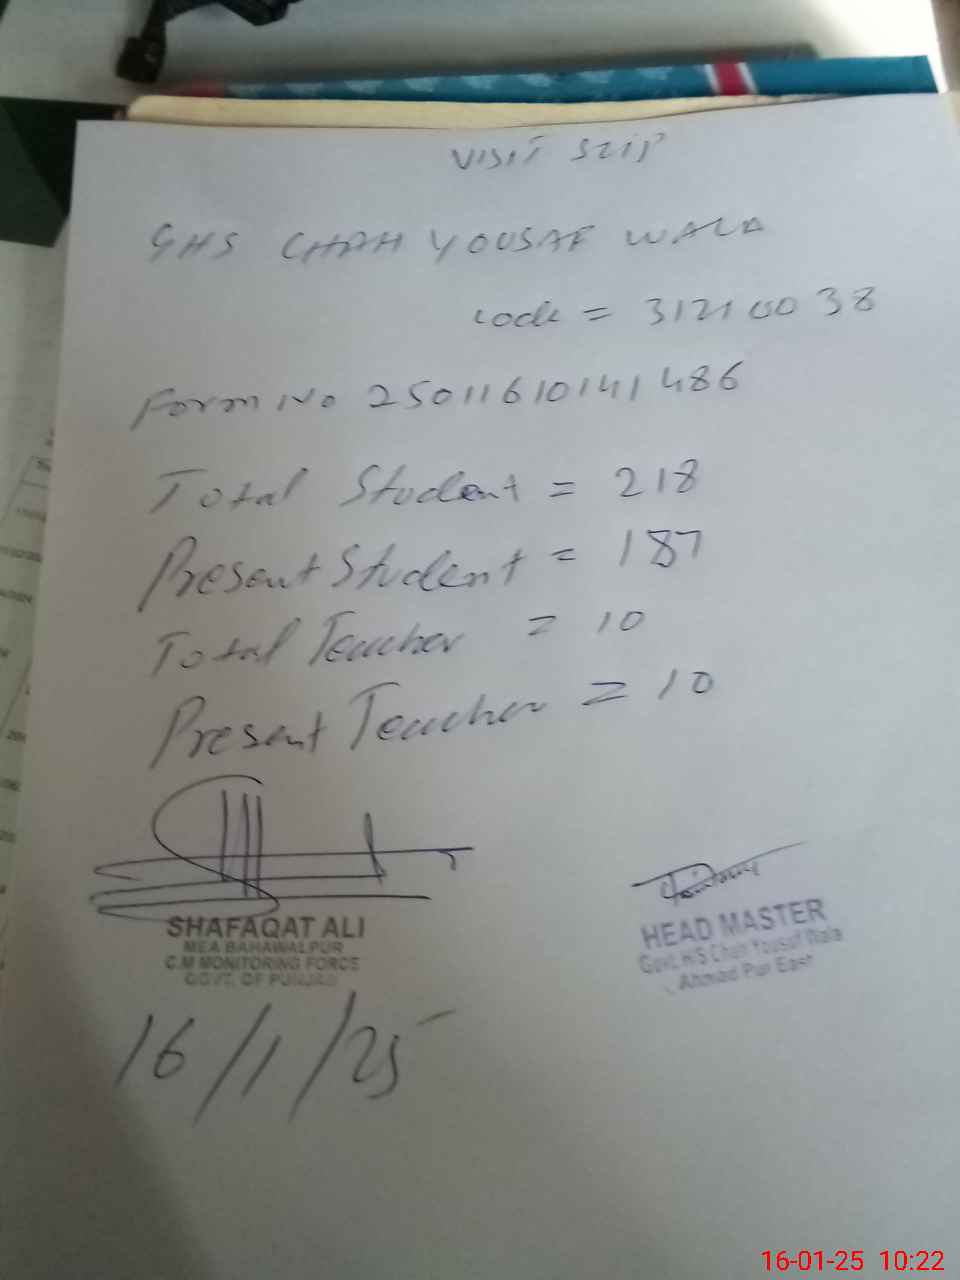 VISIT SLIP
GHS CHAH YOUSAF WALA
code = 31210038
Form No 25011610141486
Total Student = 218
Present Student = 187
Total Teacher = 10
Present Teacher = 10
SHAFAQAT ALI
MEA BAHAWALPUR
C.M MONITORING FORCE
GOVT. OF PUNJAB
HEAD MASTER
Govt. H/S Chah Yousuf Wala
Ahmad Pur East
16/1/25
16-01-25 10:22